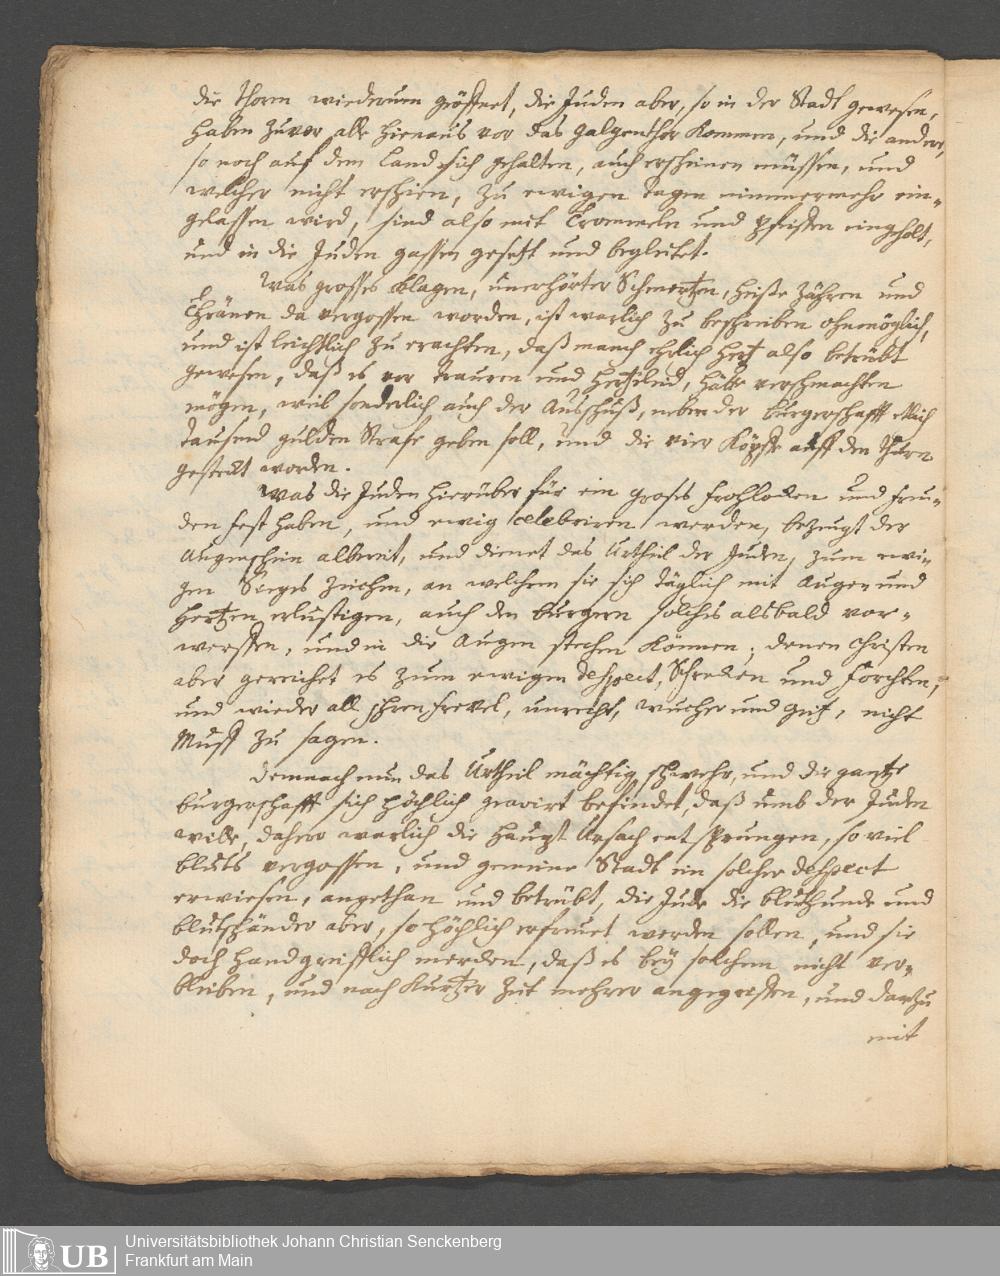 die Thorn wiederumm geöffnet, die Juden aber, so in der Stadt gewesen,
haben zuvor alle hienaus vor das Galgenthor kommen, und die andere,
so noch auf dem Land sich gehalten, auch erscheinen müssen, und
welcher nicht erschien, zu ewigen tagen nimmermehr ein-
gelassen wird, sind also mit Trommeln und Pfeiffen eingeholt,
und in die Juden gassen gesetzt und begleitet.
Was grosses klagen, unerhörter Schmertzen, heiße Zähren und
Thränen da vergossen worden, ist warlich zu beschreiben ohnmöglich,
und ist leichtlich zu erachten, daß manch ehrlich Hertz also betrübt
gewesen, daß es vor trauren und Hertzleid, hätte verschmachten
mögen, weil sonderlich auch der Ausschuß, neben der burgerschafft
tausend gulden Strafe geben soll, und die vier Köpffe auff den Thurn
gesteckt worden.
Was die Juden hierüber für ein groses frohlocken und freu-
den fest haben, und ewig celebriren werden, bezeugt der
Augenschein albereit, und dienet das Urtheil der Juden, zum ewi-
gen Sieges Zeichen, an welchem sie sich täglich mit Augen und
Hertzen erlustigen, auch den burgern solches alsbald vor-
werffen, und in die Augen stechen können; denen Christen
aber gereichet es zum ewigen despect, Schrecken und Forchten,
und wieder all ihren frevel, unrecht, wucher und geitz, nicht
Muff zu sagen.
Demnach nun das Urtheil mächtig schwehr, und die gantze
burgerschafft sich höchlich gravirt befindet, daß umb der Juden
wille, dahero warlich die Haupt Ursach entsprungen, so viel
bluts vergossen, und gemeine Stadt ein solcher despect
erwiesen, angethan und betrübt, die Jude die bluthunde und
blutschänder aber, so höchlich erfreuet werden sollen, und sie
doch handgreifflich merden, daß es bey solchem nicht ver-
bleiben, und nach kurtzer Zeit mehrer angegriffen, und darzu
mit
UB
Universitätsbibliothek Johann Christian Senckenberg
Frankfurt am Main